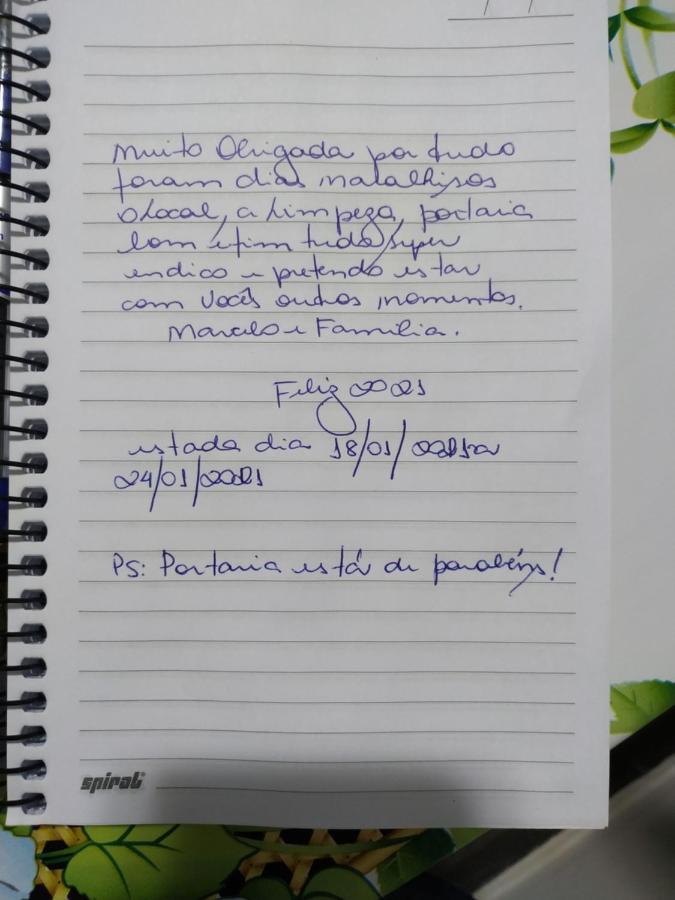 Muito Obrigada por tudo
foram dias maralhisos
o Local, a Limpeza, portaria
bom efim tudo super
endico e pretendo estar
com vocês outros momentos.
Marcelo e Familia.
Feliz 2021
estada dia 18/01/2021 a
24/01/2021
PS: Portaria está de parabéns!
spiral